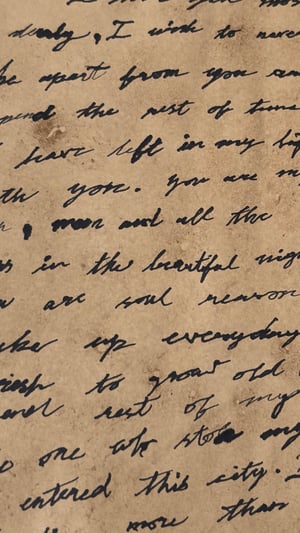 dearly, I wish to never
be apart from you and
spend the rest of time
I have left in my life
with you. You are my
, moon and all the
in the beautiful night
are soul reason
wake up everyday
wish to grow old
and rest of my
one who stole my
entered this city. I
more than